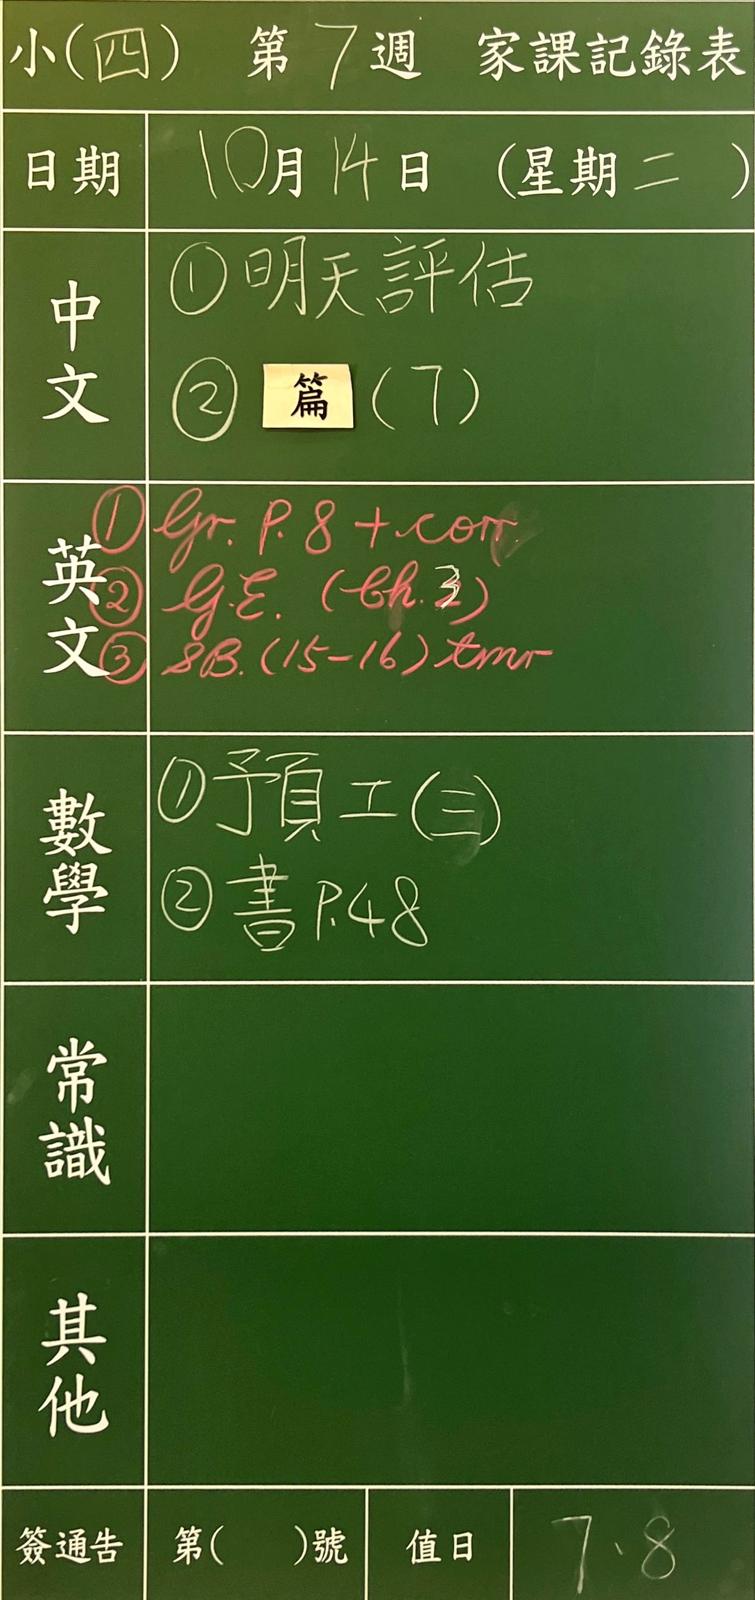 小(四) 第7週 家課記錄表
日期 10月14日 (星期二)
中文
①明天評估
② 篇 (7)
英文
① Gr. P. 8 + corr.
② G.E. (Ch. 3)
③ SB. (15-16) tmr
數學
①預工(三)
②書P.48
常識
其他
簽通告 第( )號 值日 7、8